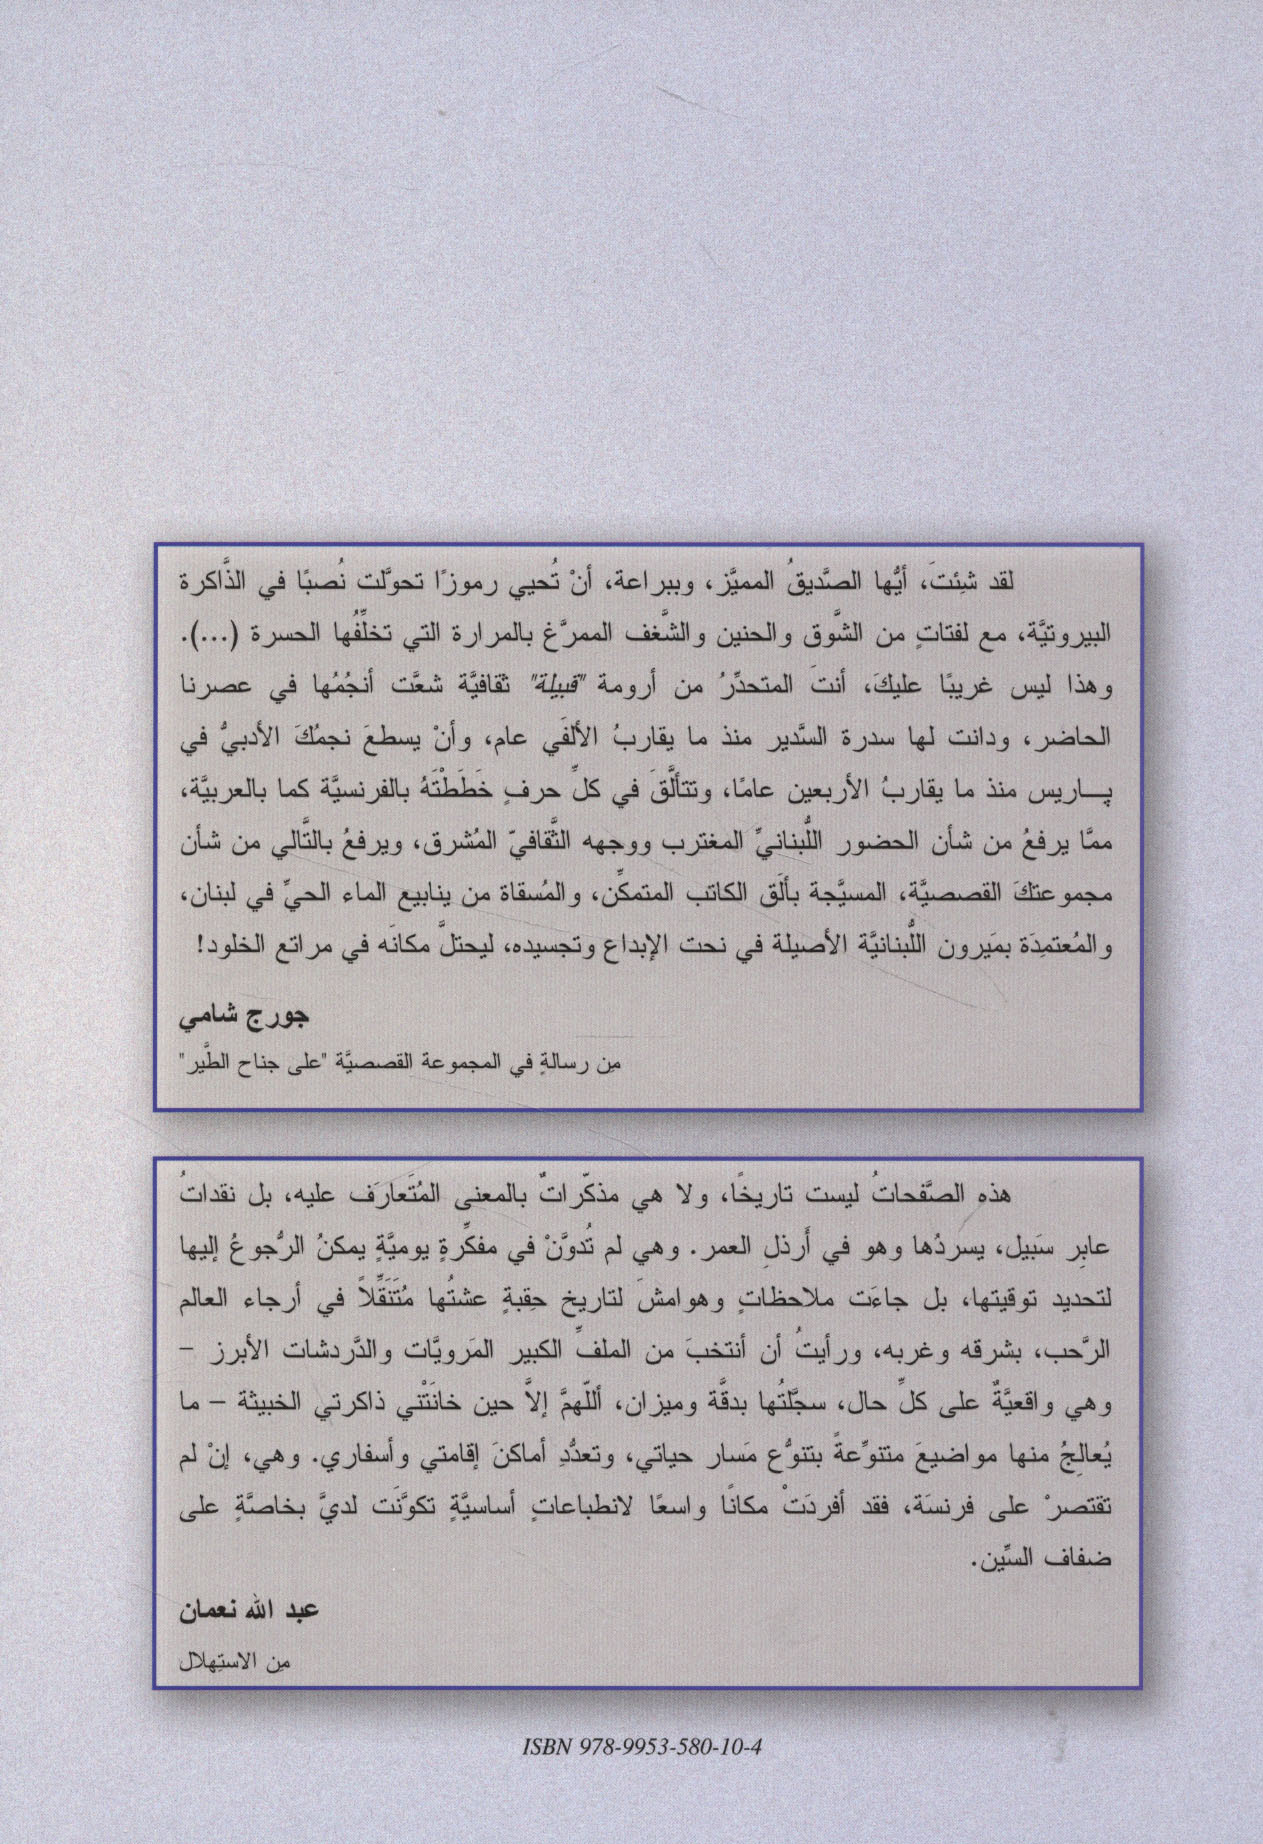 لقد شِئتَ، أيُّها الصَّديقُ المميَّز، وببراعة، أنْ تُحيي رموزًا تحوَّلت نُصبًا في الذَّاكرة
البيروتيَّة، مع لفتاتٍ من الشَّوق والحنين والشَّغف الممرَّغ بالمرارة التي تخلِّفُها الحسرة (...).
وهذا ليس غريبًا عليكَ، أنتَ المتحدِّرُ من أرومة "قبيلة" ثقافيَّة شعَّت أنجُمُها في عصرنا
الحاضر، ودانت لها سدرة السَّدير منذ ما يقاربُ الألفَي عام، وأنْ يسطعَ نجمُكَ الأدبيُّ في
پـاريس منذ ما يقاربُ الأربعين عامًا، وتتألَّقَ في كلِّ حرفٍ خَطَطْتَهُ بالفرنسيَّة كما بالعربيَّة،
ممَّا يرفعُ من شأن الحضور اللُّبنانيِّ المغترب ووجهه الثَّقافيّ المُشرق، ويرفعُ بالتَّالي من شأن
مجموعتكَ القصصيَّة، المسيَّجة بألَق الكاتب المتمكِّن، والمُسقاة من ينابيع الماء الحيِّ في لبنان،
والمُعتمِدَة بمَيرون اللُّبنانيَّة الأصيلة في نحت الإبداع وتجسيده، ليحتلَّ مكانَه في مراتع الخلود!
جورج شامي
مِن رسالةٍ في المجموعة القصصيَّة "على جناح الطَّير"
هذه الصَّفحاتُ ليست تاريخًا، ولا هي مذكّراتٌ بالمعنى المُتَعارَف عليه، بل نقداتُ
عابِر سَبيل، يسردُها وهو في أرذلِ العمر. وهي لم تُدوَّنْ في مفكِّرةٍ يوميَّةٍ يمكنُ الرُّجوعُ إليها
لتحديد توقيتها، بل جاءَت ملاحظاتٍ وهوامشَ لتاريخ حقِبةٍ عشتُها مُتَنَقِّلاً في أرجاء العالم
الرَّحب، بشرقه وغربه، ورأيتُ أن أنتخبَ من الملفِّ الكبير المَرويَّات والدَّردشات الأبرز –
وهي واقعيَّةٌ على كلِّ حال، سجَّلتُها بدقَّة وميزان، أللّهمَّ إلاَّ حين خانَتْني ذاكرتي الخبيثة – ما
يُعالِجُ منها مواضيعَ متنوِّعةً بتنوُّع مَسار حياتي، وتعدُّدِ أماكنَ إقامتي وأسفاري. وهي، إنْ لم
تقتصرْ على فرنسَة، فقد أفردَتْ مكانًا واسعًا لانطباعاتٍ أساسيَّةٍ تكوَّنَت لديَّ بخاصَّةٍ على
ضفاف السِّين.
عبد الله نعمان
مِن الاستِهلال
ISBN 978-9953-580-10-4